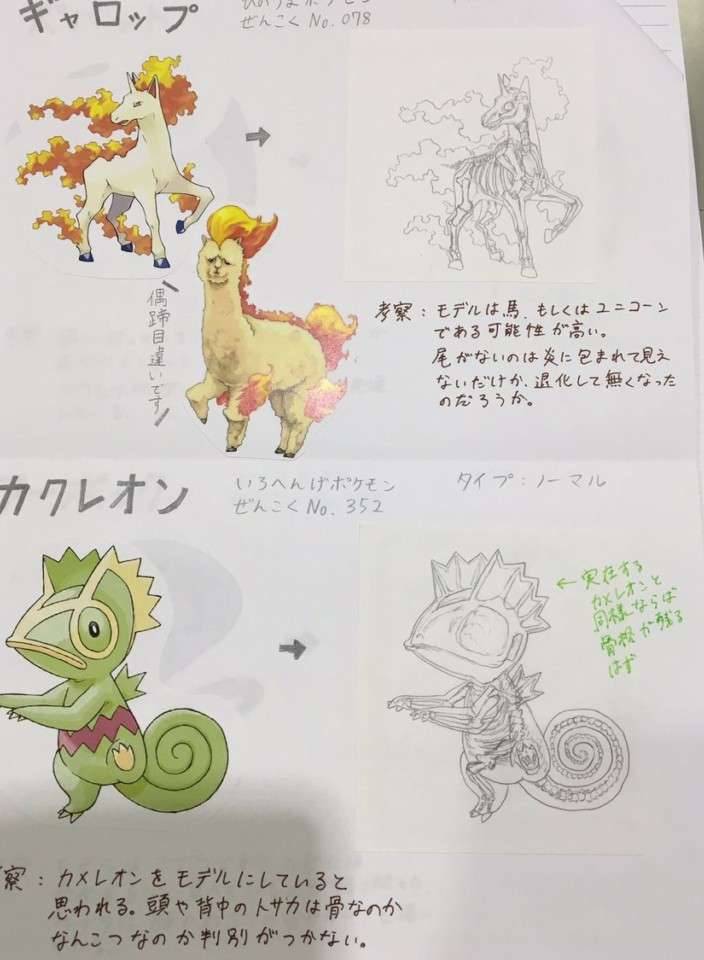 ギャロップ
ひのうまポケモン
ぜんこくNo.078
偶蹄目違いです
考察：モデルは馬、もしくはユニコーン
である可能性が高い。
尾がないのは炎に包まれて見え
ないだけか、退化して無くなった
のだろうか。
カクレオン
いろへんげポケモン
ぜんこくNo.352
タイプ：ノーマル
←実在する
カメレオンと
同様ならば
骨格が残る
はず
察：カメレオンをモデルにしていると
思われる。頭や背中のトサカは骨なのか
なんこつなのか判別がつかない。